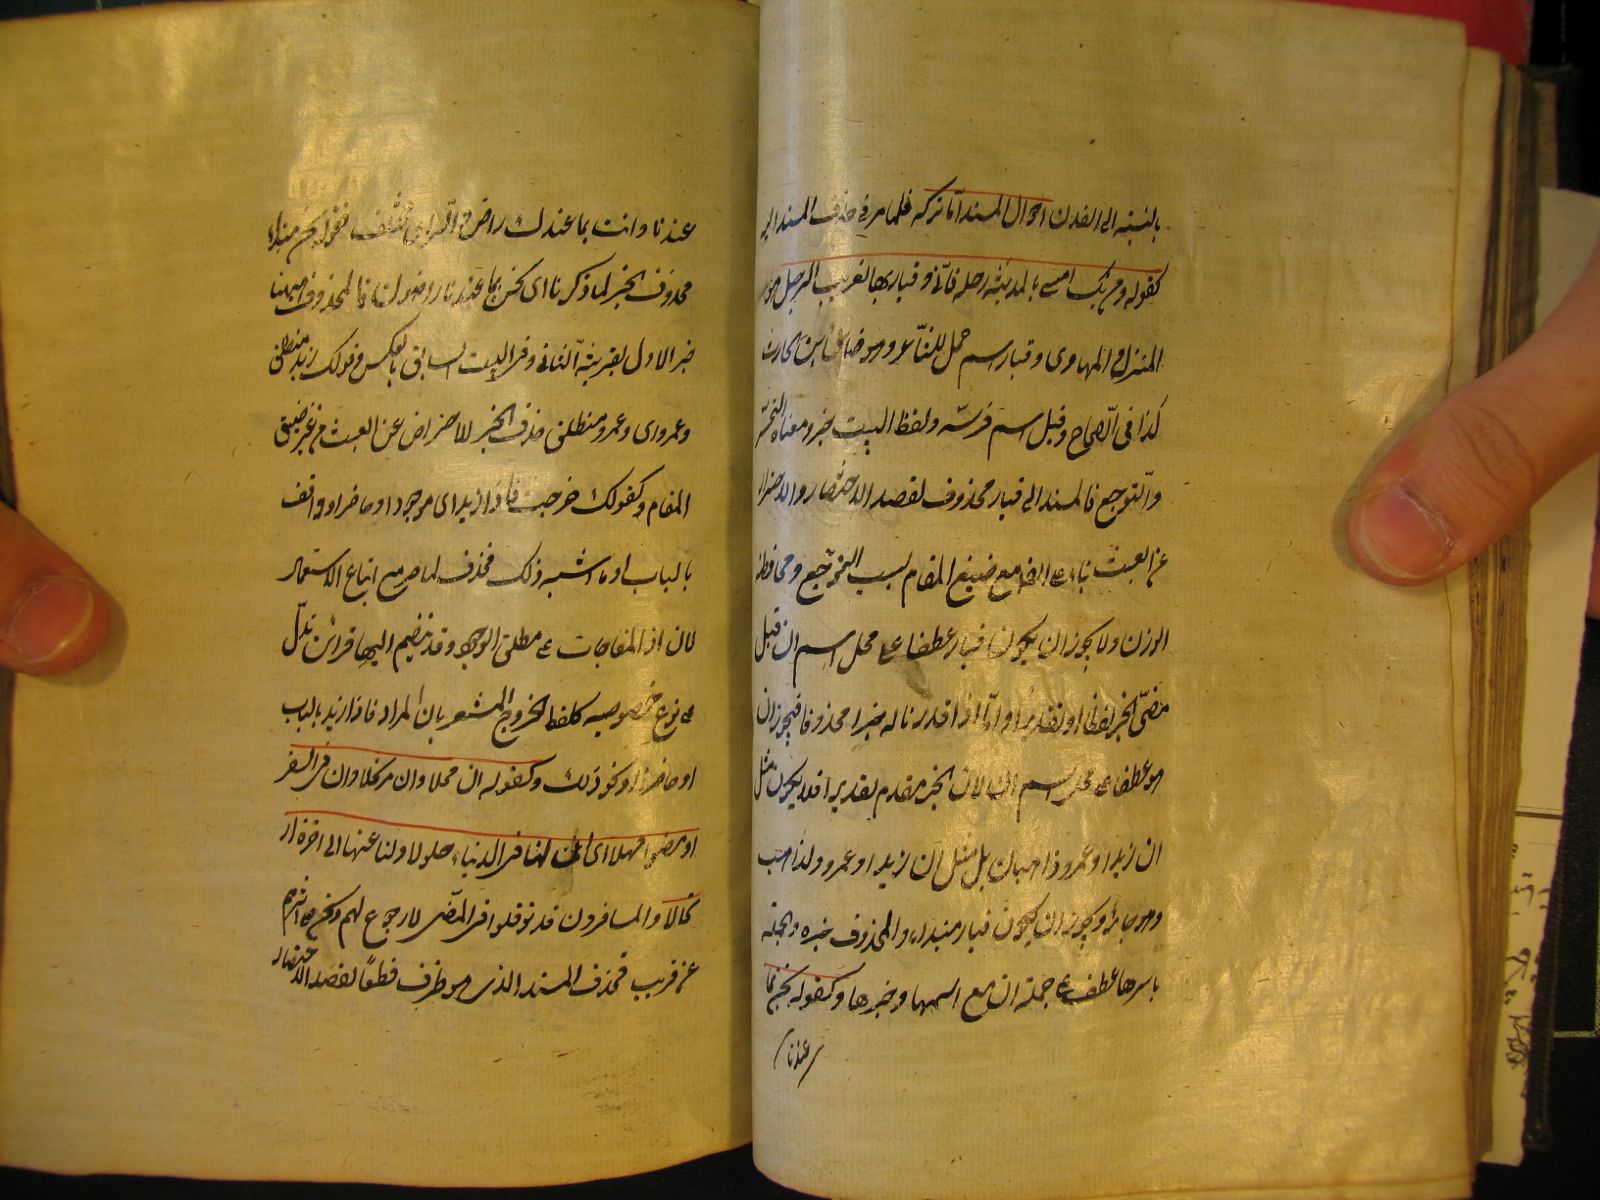 بالنسبة الى الفدن احوال المسند اما تركه فلما مر فى حذف المسند اليه
كقوله ومن يك امسى بالمدينة رحله فانى وقيار بها لغريب الرحل هو
المنزل والمهاوى وقيار اسم جمل للشاعر وهو ضابئ ابن الحارث
كذا فى الصحاح وقيل اسم فرسه ولفظ البيت خبر ومعناه التحسر
والتوجع فالمسند الى قيار محذوف لقصد الاختصار والاحتراز
عن العبث بناء على الظاهر مع ضيق المقام بسبب التوجع ومحافظة
الوزن ولا يجوز ان يكون قيار عطفا على محل اسم ان قبل
مضى الخبر لفظا او تقديرا واما اذا قدرنا له خبرا محذوفا فيجوز ان
هو عطفا على محل اسم ان لان الخبر مقدم تقديرا فلا يكون مثل
ان زيدا وعمرو ذاهبان بل مثل ان زيدا وعمرو ولذاهب
وهو جائز ويجوز ان يكون قيار مبتداء والمحذوف خبره والجملة
باسرها عطف على جملة ان مع اسمها وخبرها وكقوله نحن بما
عندنا
عندنا وانت بما عندك راض والراى مختلف فقوله نحن مبتداء
محذوف الخبر لما ذكرنا اى نحن بما عندنا راضون فالمحذوف ههنا
خبر الاول بقرينة الثانى وفى البيت السابق بالعكس وقولك زيد منطلق
وعمرو اى وعمرو منطلق حذف الخبر للاحتراز عن العبث من غير ضيق
المقام وكقولك خرجت فاذا زيد اى موجود او حاضر او واقف
بالباب او ما اشبه ذلك فحذف لما مر مع اتباع الاستعمال
لان اذا المفاجات على مطلق الوجود وقد ينضم اليها قرائن تدل
على نوع خصوصيه كلفظ الخروج المشعر بان المراد فاذا زيد بالباب
او حاضر او نحو ذلك وكقوله ان محلا وان مرتحلا وان فى السفر
اذ مضوا مهلا اى ان لنا فى الدنيا حلولا ولنا عنها الى الاخرة ار
تحالا والمسافرون قد توغلوا فى المضى لا رجوع لهم ونحن على اثرهم
عن قريب فحذف المسند الذى هو ظرف قطعا لقصد الاختصار